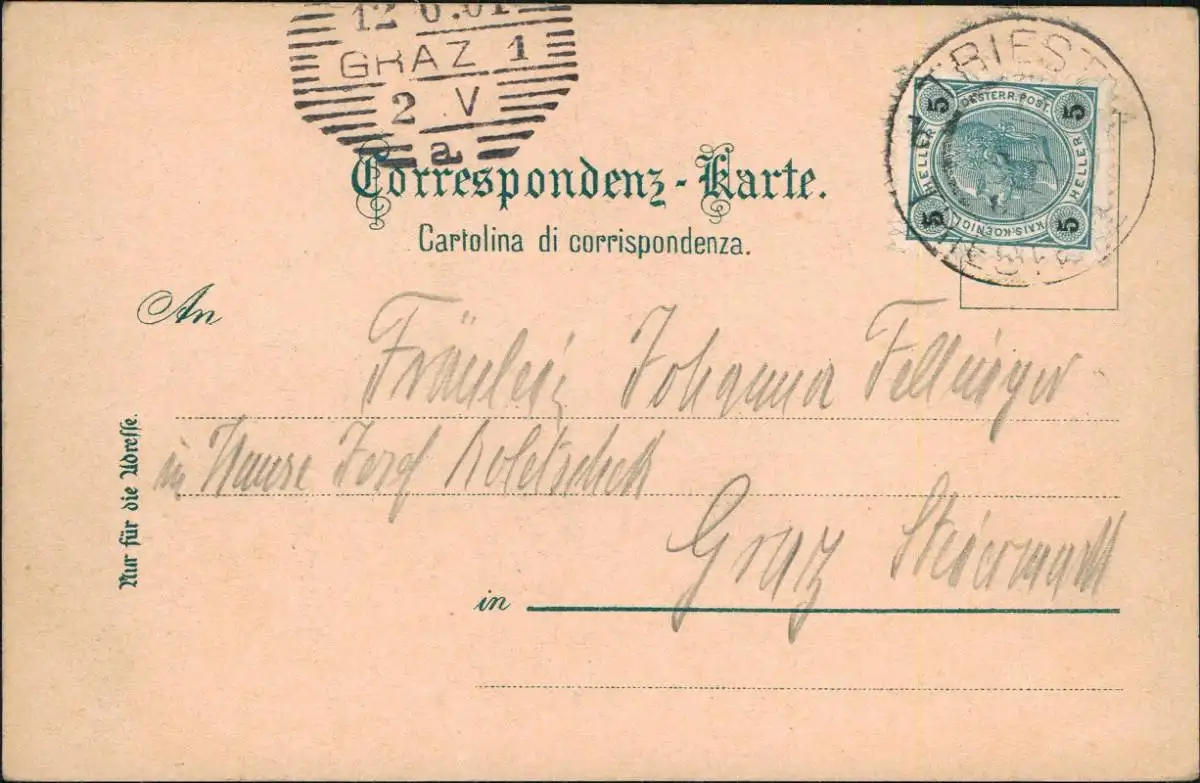 12 6.01
GRAZ 1
2 . V
a
TRIEST
5 OESTERR. POST. 5
HELLER HELLER
5 KAIS. KOENIGL. 5
Correspondenz-Karte.
Cartolina di corrispondenza.
An
Fräulein Johanna Fellinger
in Hause Josef Koletscheck
Graz Steiermark
in
Nur für die Adresse.